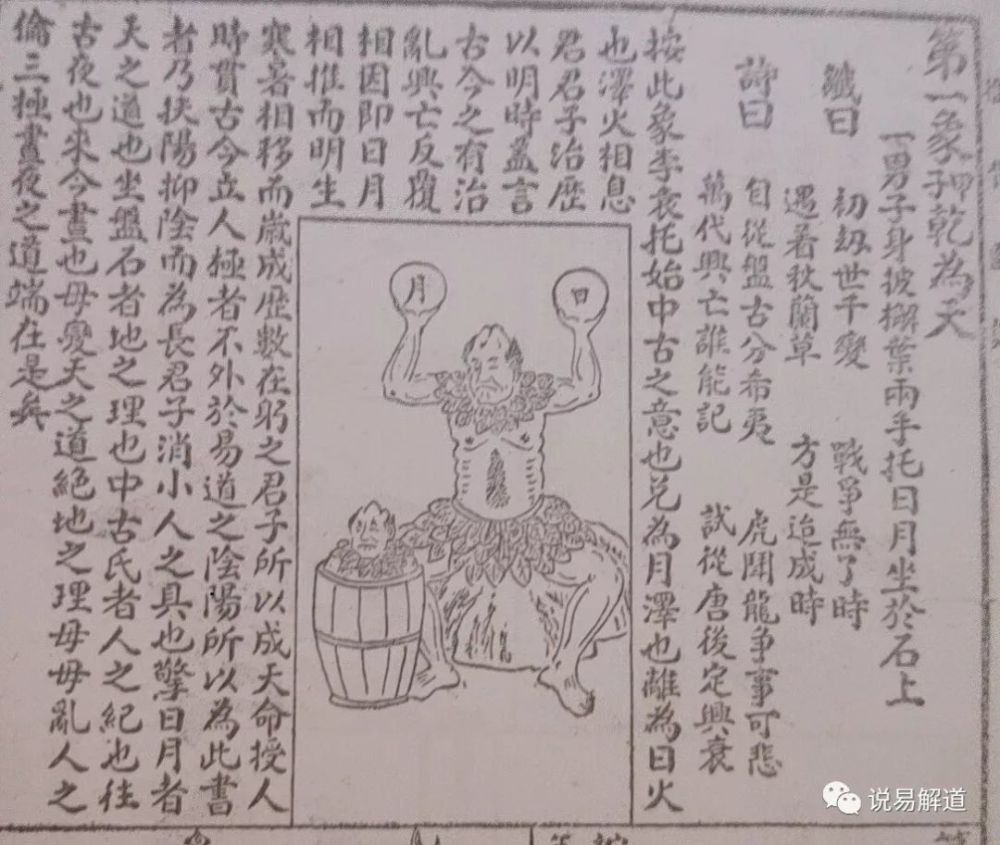 第一象甲子乾為天
一男子身披槲葉兩手托日月坐於石上
讖曰 初劫世千變 戰爭無了時
遇着秋蘭草 方是造成時
詩曰 自從盤古分希夷 虎鬪龍爭事可悲
萬代興亡誰能記 試從唐後定興衰
按此象李袁托始中古之意也兌為月澤也離為日火
也澤火相息
君君子治歷
以明時蓋言
古今之有治
亂興亡反覆
相因即日月
相推而明生
寒暑相移而歲成歷數在躬之君子所以成天命授人
時貫古今立人極者不外於易道之陰陽所以為此書
者乃扶陽抑陰而為長君子消小人之具也擎日月者
天之道也坐盤石者地之理也中古氏者人之紀也往
古夜也來今晝也毋變天之道絕地之理毋毋亂人之
倫三極晝夜之道端在是矣
日
月
说易解道